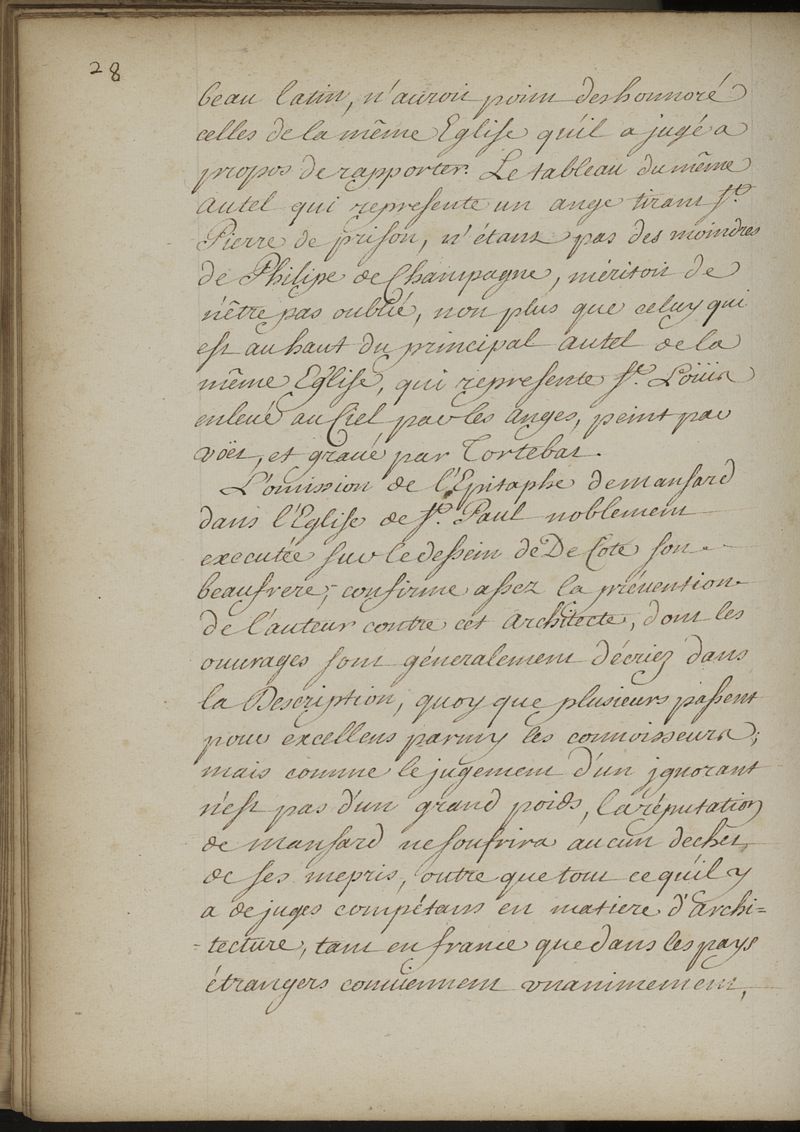 28
beau latin, n'auroit point deshonnoré
celles de la même Eglise qu'il a jugé a
propos de rapporter. Le tableau du même
autel qui represente un ange tirant St.
Pierre de prison, n'étant pas des moindres
de Philipe de Champagne, méritoit de
n'être pas oublié, non plus que celuy qui
est au haut du principal autel de la
même Eglise, qui represente St. Loüis
enlevé au Ciel par les anges, peint par
Voët, et gravé par Tortebat.
L'omission de l'Epitaphe de mansard
dans l'Eglise de St. Paul noblement
executée sur le dessein de De Cote son
beaufrere, confirme assez la prévention
de l'auteur contre cet architecte, dont les
ouvrages sont géneralement décriez dans
la Description, quoy que plusieurs passent
pour excellens parmy les connoisseurs;
mais comme le jugement d'un jgnorant
n'est pas d'un grand poids, la réputation
de mansard ne soufrira aucun dechet
de ses mepris, outre que tout ce qu'il y
a de juges compétans en matiere d'archi=
=tecture, tant en france que dans les pays
étrangers conviennent vnanimement,